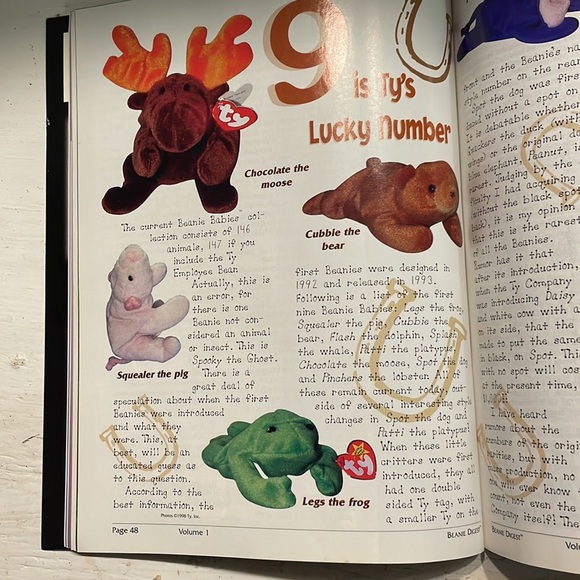 9
is Ty's
Lucky Number
ty
Chocolate the
moose
Cubble the
bear
The current Beanie Babies™ col-
lection consists of 146
animals, 147 if you
include the Ty
Employee Bean.
Actually, this is
an error, for
there is one
Beanie not con-
sidered an animal
or insect. This is
Spooky the Ghost.
There is a
great deal of
speculation about when the first
Beanies were introduced
and what they
were. This, at
best, will be an
educated guess as
to this question.
According to the
best information, the
Squealer the pig
Photos ©1998 Ty, Inc.
first Beanies were designed in
1992 and released in 1993.
Following is a list of the first
nine Beanie Babies: Legs the frog,
Squealer the pig, Cubbie the
bear, Flash the dolphin, Splash
the whale, Patti the platypus,
Chocolate the moose, Spot the dog
and Pinchers the lobster. All of
these remain current today out-
side of several interesting style
changes in Spot the dog and
Patti the platypus!
When these little
critters were first
introduced, they all
had one double
sided Ty tag, with
a smaller Ty on the
ty
Legs the frog
Page 48
Volume 1
BEANIE DIGEST™
front and the Beanie's na
style number on the rear
Spot the dog was first
leased without a spot on
It is debatable whether
Quackers the duck (with
wings) or the original d
blue elephant, Peanut, is
rarest. Judging by the
ficulty I had acquiring
(without the black spo
back), it is my opinion
that this is the rarest
of all the Beanies.
Rumor has it that
after its introduction,
when the Ty Company
was introducing Daisy
and white cow with a
on its side, that the
made to put the same
in black, on Spot. This
with no spot will cos
at the present time,
I have heard
rumors about the
numbers of the origi
rarities, but with
mass production, no
will ever know
count, not even the
Company itself! The
BEANIE DIGEST™
Volu